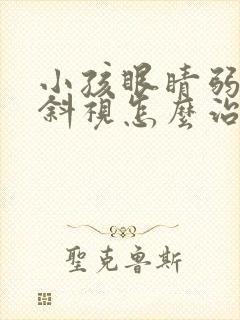 小孩眼睛弱
斜視怎麼治
聖克魯斯